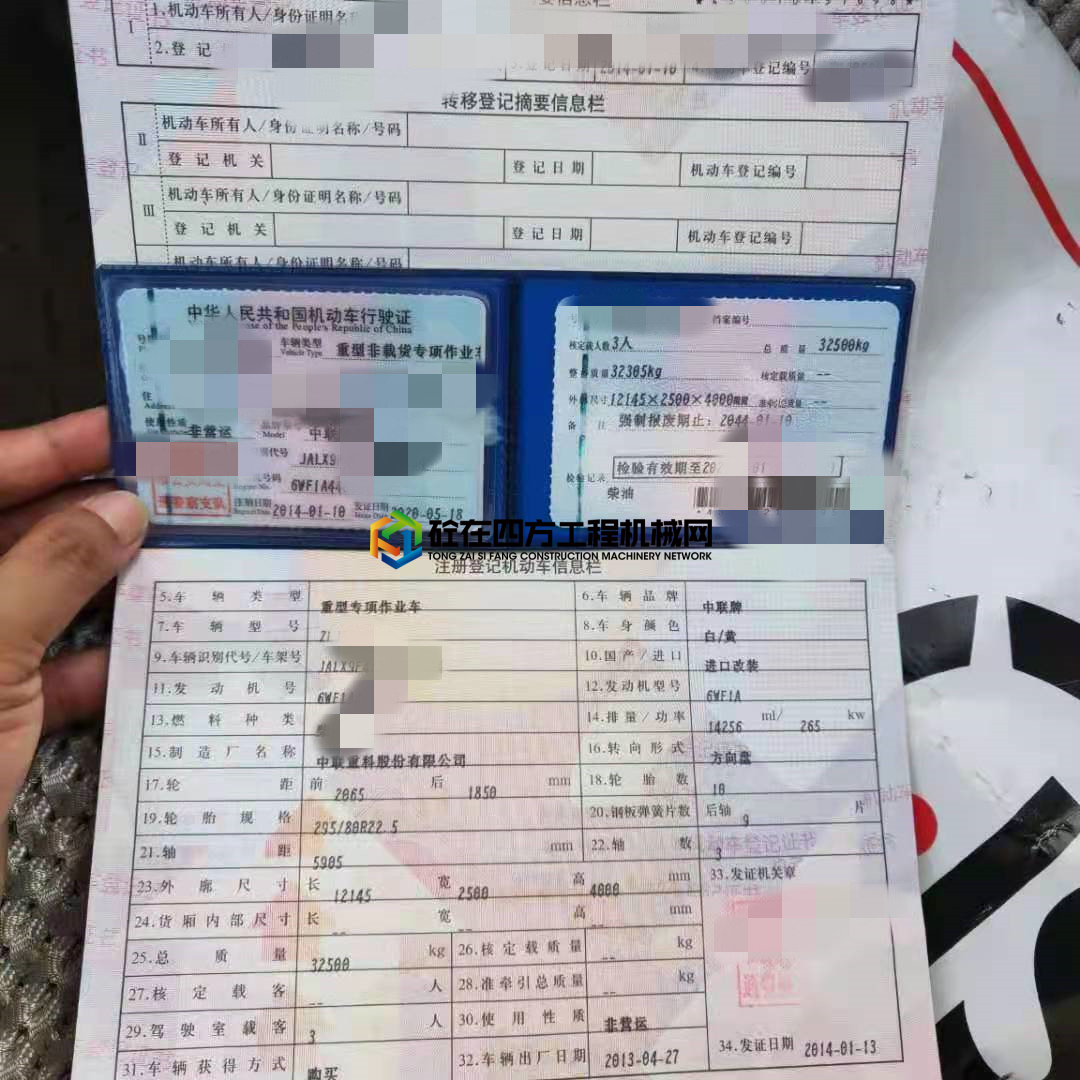 I 1.机动车所有人/身份证明名
2.登记
登记日期 2014-01-10 登记编号
转移登记摘要信息栏
II 机动车所有人/身份证明名称/号码
登记机关 登记日期 机动车登记编号
III 机动车所有人/身份证明名称/号码
登记机关 登记日期 机动车登记编号
机动车所有人/身份证明名称/号码
中华人民共和国机动车行驶证
se of the People's Republic of China
车辆类型 重型非载货专项作业车
Vehicle Type
住
Address
使用性质 非营运
Model 中联
别代号 JALX9
机号码 6WF1A44
注册日期 2014-01-10 发证日期 2020-05-18
Register Date Issue Date
号 档案编号
核定载人数 3人 总质量 32500kg
整备质量 32305kg 核定载质量 --
外廓尺寸 12145×2500×4000mm 准牵引总质量 --
备注 强制报废期止：2044-01-10
检验记录 检验有效期至20 01
柴油
砼在四方工程机械网
TONG ZAI SI FANG CONSTRUCTION MACHINERY NETWORK
注册登记机动车信息栏
5.车辆类型 重型专项作业车 6.车辆品牌 中联牌
7.车辆型号 ZL 8.车身颜色 白/黄
9.车辆识别代号/车架号 JALX9F 10.国产/进口 进口改装
11.发动机号 6WF1 12.发动机型号 6WF1A
13.燃料种类 14.排量/功率 14256 ml/ 265 kw
15.制造厂名称 中联重科股份有限公司 16.转向形式 方向盘
17.轮距 前 2065 后 1850 mm 18.轮胎数 10
19.轮胎规格 295/80R22.5 20.钢板弹簧片数 后轴 9 片
21.轴距 5905 mm 22.轴数 3
23.外廓尺寸 长 12145 宽 2500 高 4000 mm 33.发证机关章
24.货厢内部尺寸 长 -- 宽 -- 高 -- mm
25.总质量 32500 kg 26.核定载质量 -- kg
27.核定载客 -- 人 28.准牵引总质量 -- kg
29.驾驶室载客 3 人 30.使用性质 非营运
31.车辆获得方式 购买 32.车辆出厂日期 2013-04-27 34.发证日期 2014-01-13